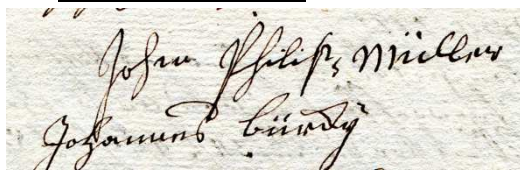 Johan Philips Müller
Johannes bürdÿ